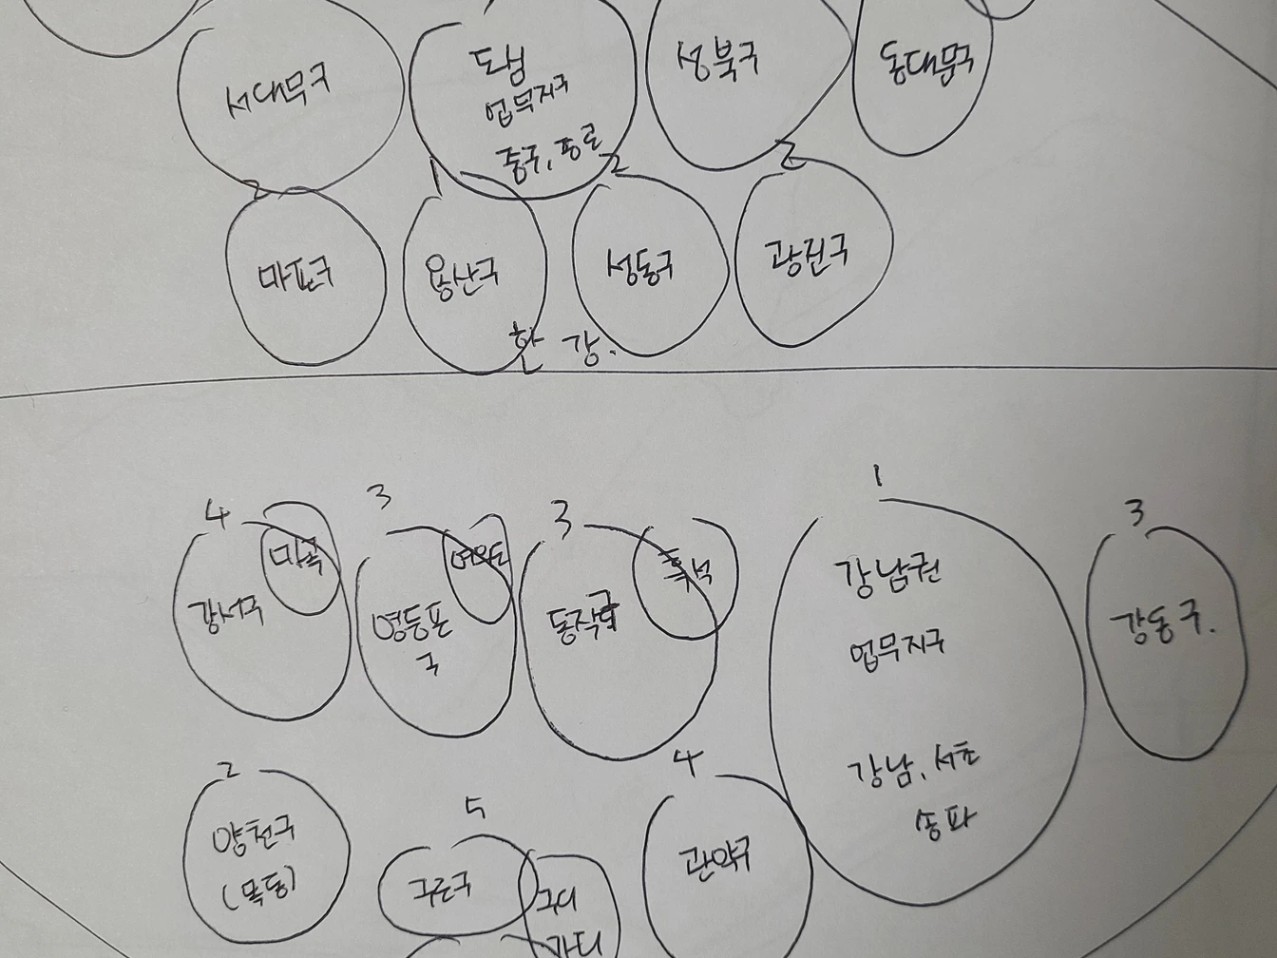 서대문구
도심
업무지구
중구, 종로
성북구
동대문구
2
마포구
1
용산구
2
성동구
2
광진구
한강.
4
마곡
강서구
3
여의도
영등포
구
3
흑석
동작구
1
강남권
업무지구
강남, 서초
송파
3
강동구.
2
양천구
(목동)
5
구로구
구디
가디
4
관악구